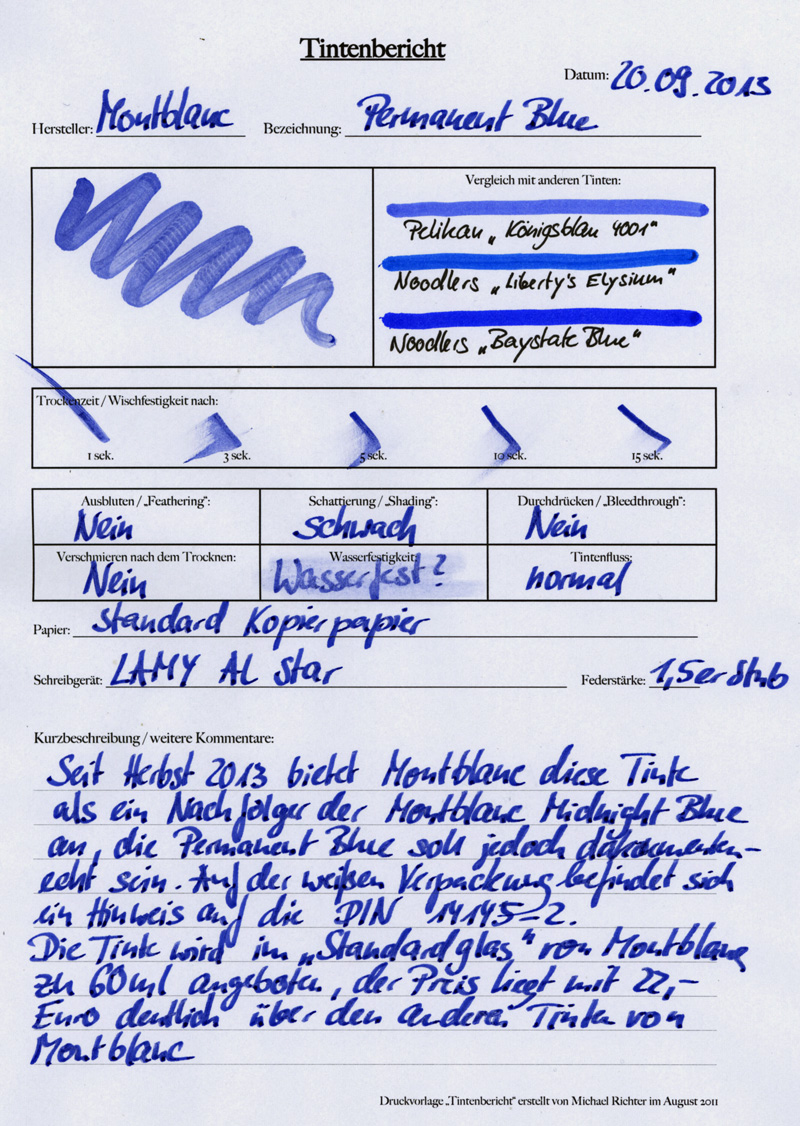 Tintenbericht
Datum: 20.09.2013
Hersteller: Montblanc Bezeichnung: Permanent Blue
Vergleich mit anderen Tinten:
Pelikan „Königsblau 4001"
Noodlers „Liberty's Elysium"
Noodlers „Baystate Blue"
Trockenzeit / Wischfestigkeit nach:
1 sek. 3 sek. 5 sek. 10 sek. 15 sek.
Ausbluten / „Feathering": Schattierung / „Shading": Durchdrücken / „Bleedthrough":
Nein schwach Nein
Verschmieren nach dem Trocknen: Wasserfestigkeit: Tintenfluss:
Nein Wasserfest? normal
Papier: Standard Kopierpapier
Schreibgerät: LAMY AL Star Federstärke: 1,5er Stub
Kurzbeschreibung / weitere Kommentare:
Seit Herbst 2013 bietet Montblanc diese Tinte
als ein Nachfolger der Montblanc Midnight Blue
an, die Permanent Blue soll jedoch dokumenten-
echt sein. Auf der weißen Verpackung befindet sich
ein Hinweis auf die DIN 14145-2.
Die Tinte wird im „Standardglas" von Montblanc
zu 60ml angeboten, der Preis liegt mit 22,-
Euro deutlich über den anderen Tinten von
Montblanc
Druckvorlage „Tintenbericht" erstellt von Michael Richter im August 2011